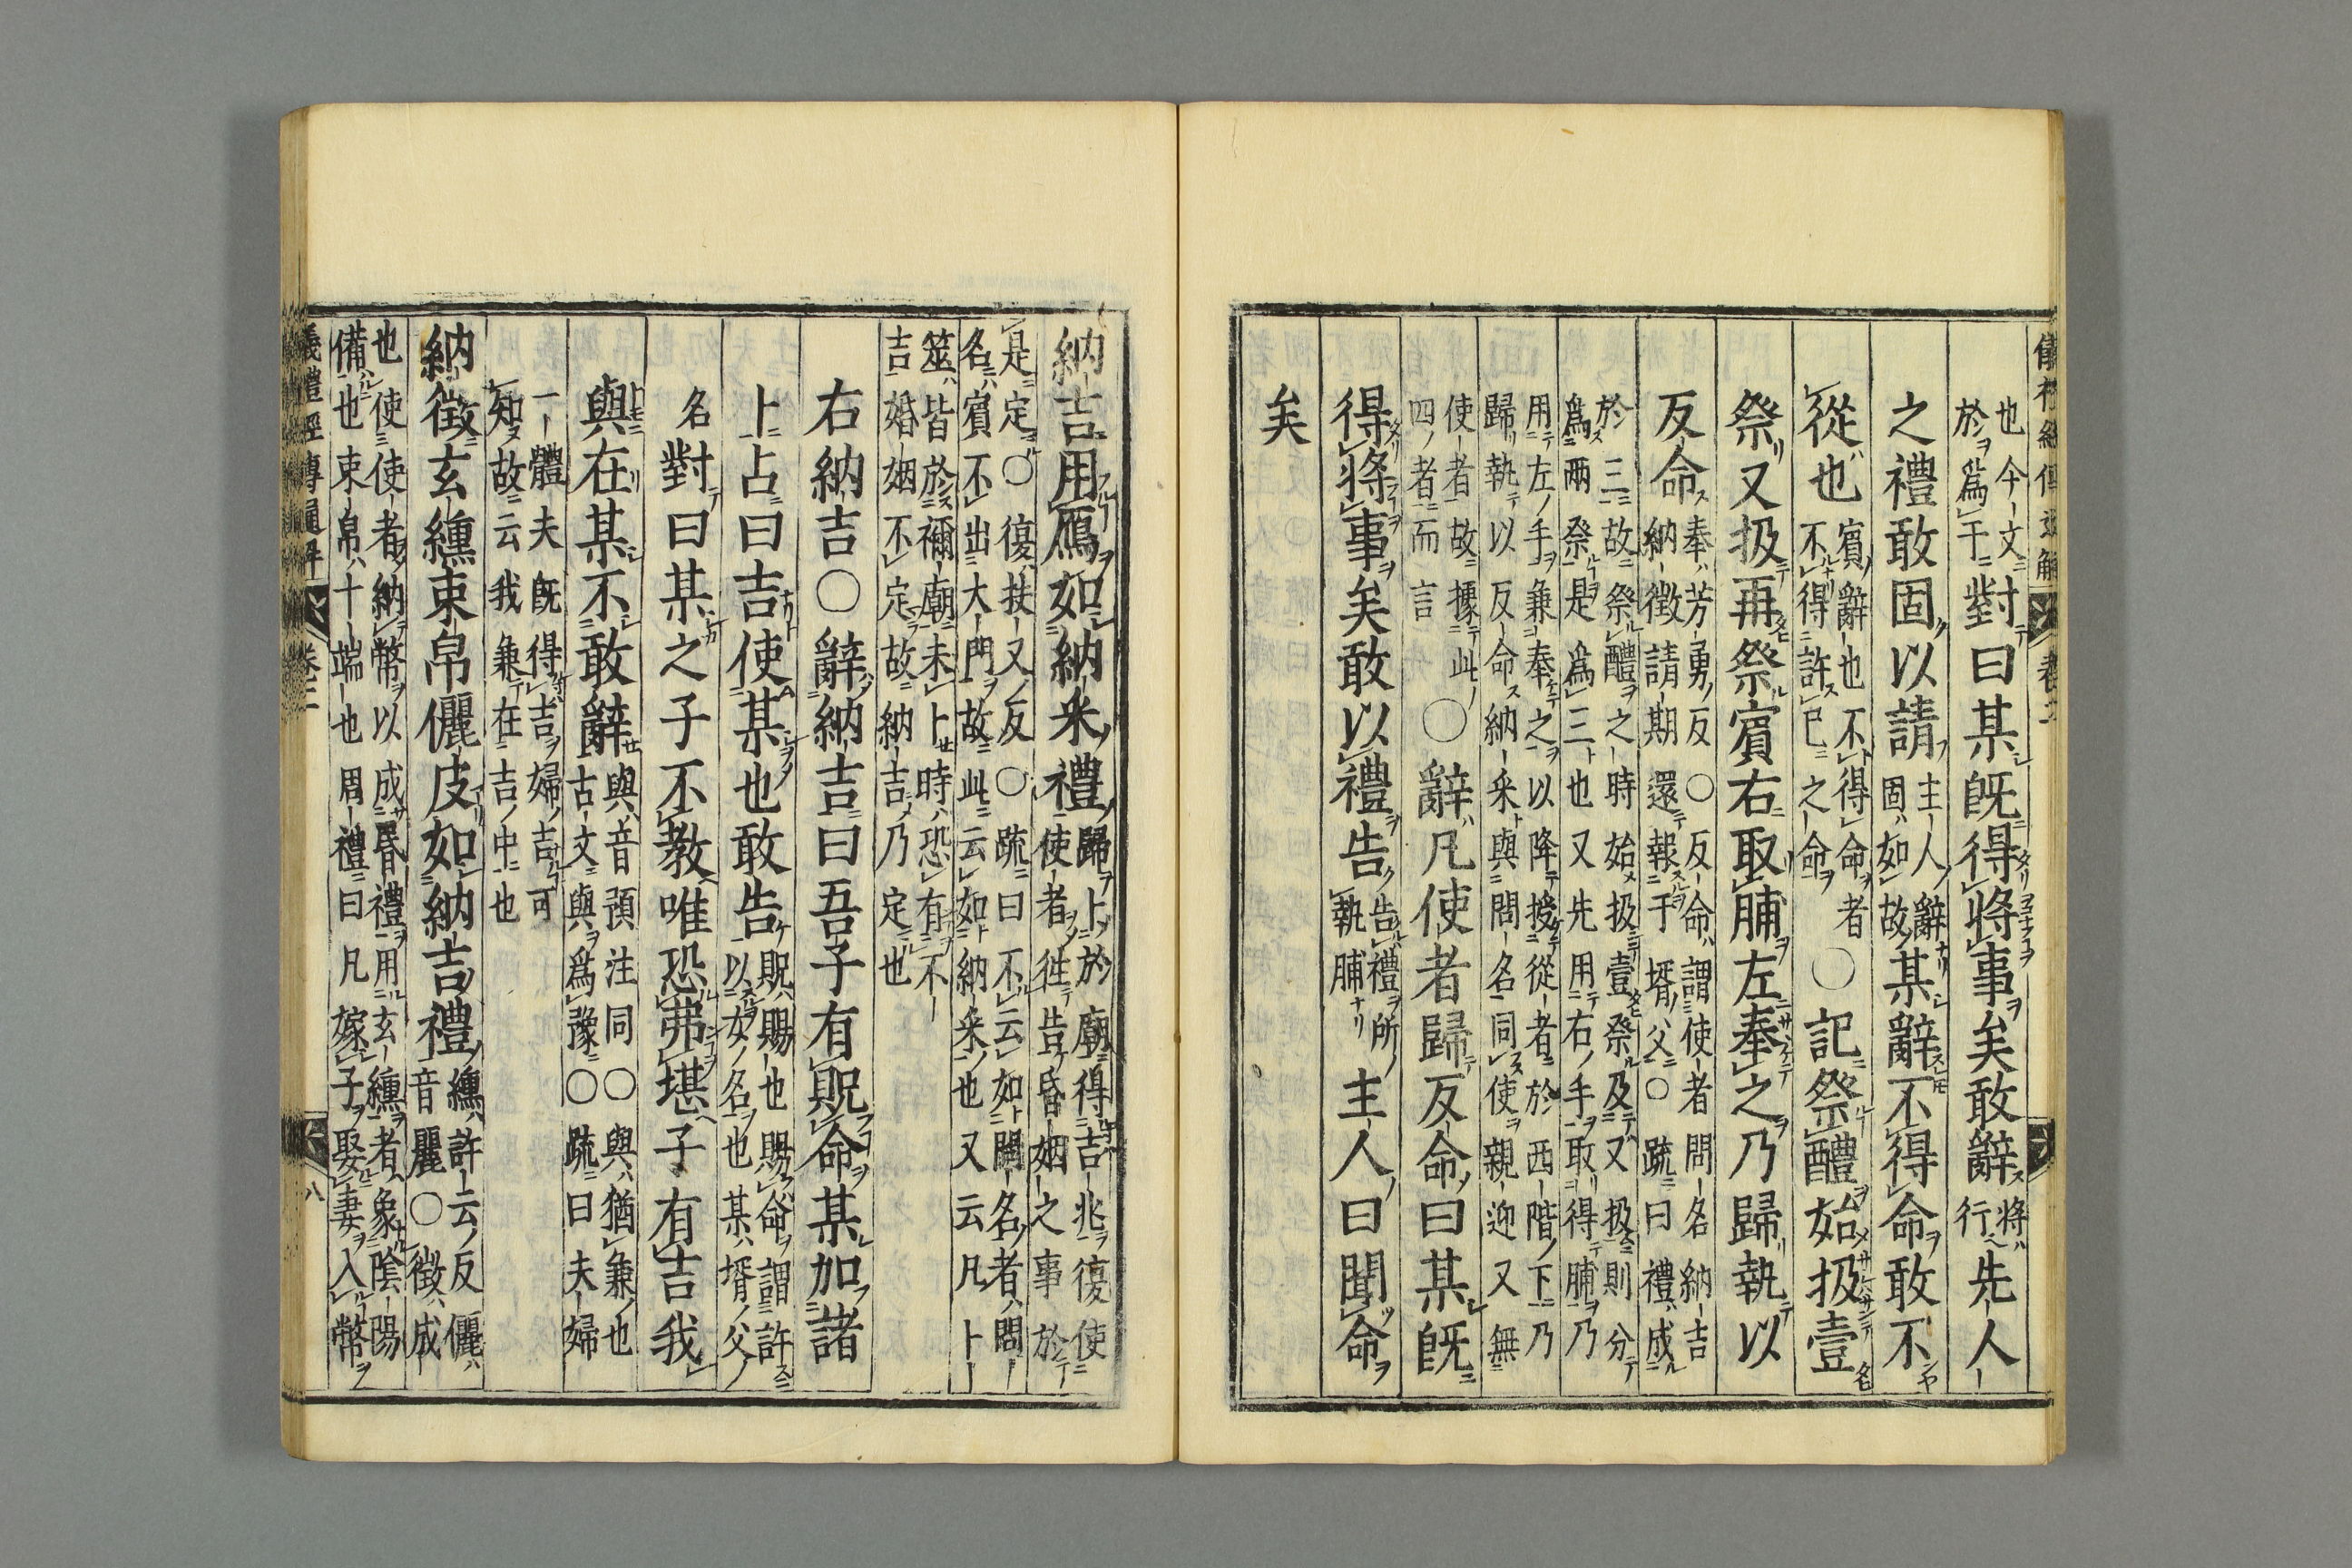 儀禮經傳通解 卷二
也今文於爲于對曰某旣得將事矣敢辭將行先人
之禮敢固以請主人辭固如故某辭不得命敢不
從也賓辭也不得命者不得許已之命〇記祭醴始扱壹
祭又扱再祭賓右取脯左奉之乃歸執以
反命奉芳勇反〇反命謂使者問名納吉納徵請期還報于壻父〇疏曰禮成
於三故祭醴之時始扱壹祭及又扱則分爲兩祭是爲三也又先用右手取得脯乃
用左手兼奉之以降授從者於西階下乃歸執以反命納采與問名同使親迎又無
使者故據此四者而言〇辭凡使者歸反命曰某旣
得將事矣敢以禮告告禮所執脯主人曰聞命
矣
納吉用鴈如納采禮歸卜於廟得吉兆復使使者徃告昏姻之事於
是定〇復扶又反〇疏曰不云如問名者問名賓不出大門故此云如納采也又云凡卜
筮皆於禰廟未卜時恐有不吉婚姻不定故納吉乃定也
右納吉〇辭納吉曰吾子有貺命某加諸
卜占曰吉使某也敢告貺賜也賜命謂許以女名也某壻父
名對曰某之子不教唯恐弗堪子有吉我
與在某不敢辭與音預注同〇與猶兼也古文與爲豫〇疏曰夫婦
一體夫旣得吉婦吉可知故云我兼在吉中也
納徵玄纁束帛儷皮如納吉禮纁許云反儷音麗〇徵成
也使使者納幣以成昏禮用玄纁者象陰陽備也束帛十端也周禮曰凡嫁子娶妻入幣
儀禮經傳通解 卷二 八